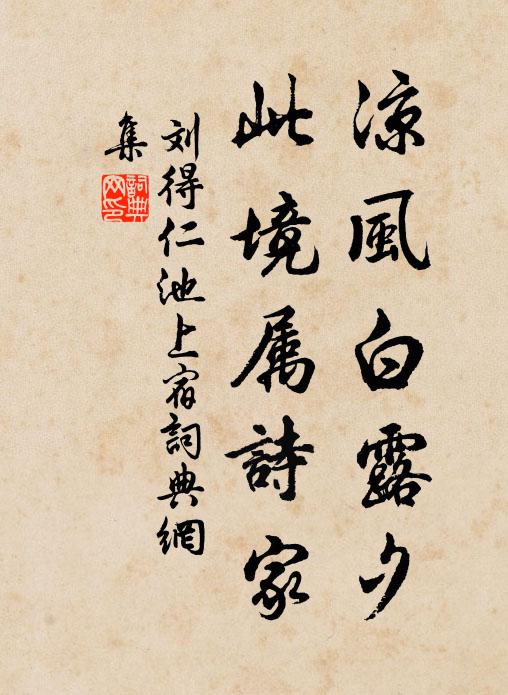 凉風白露夕
此境属詩家
刘得仁池上宿詞典網
集
詞典
网印